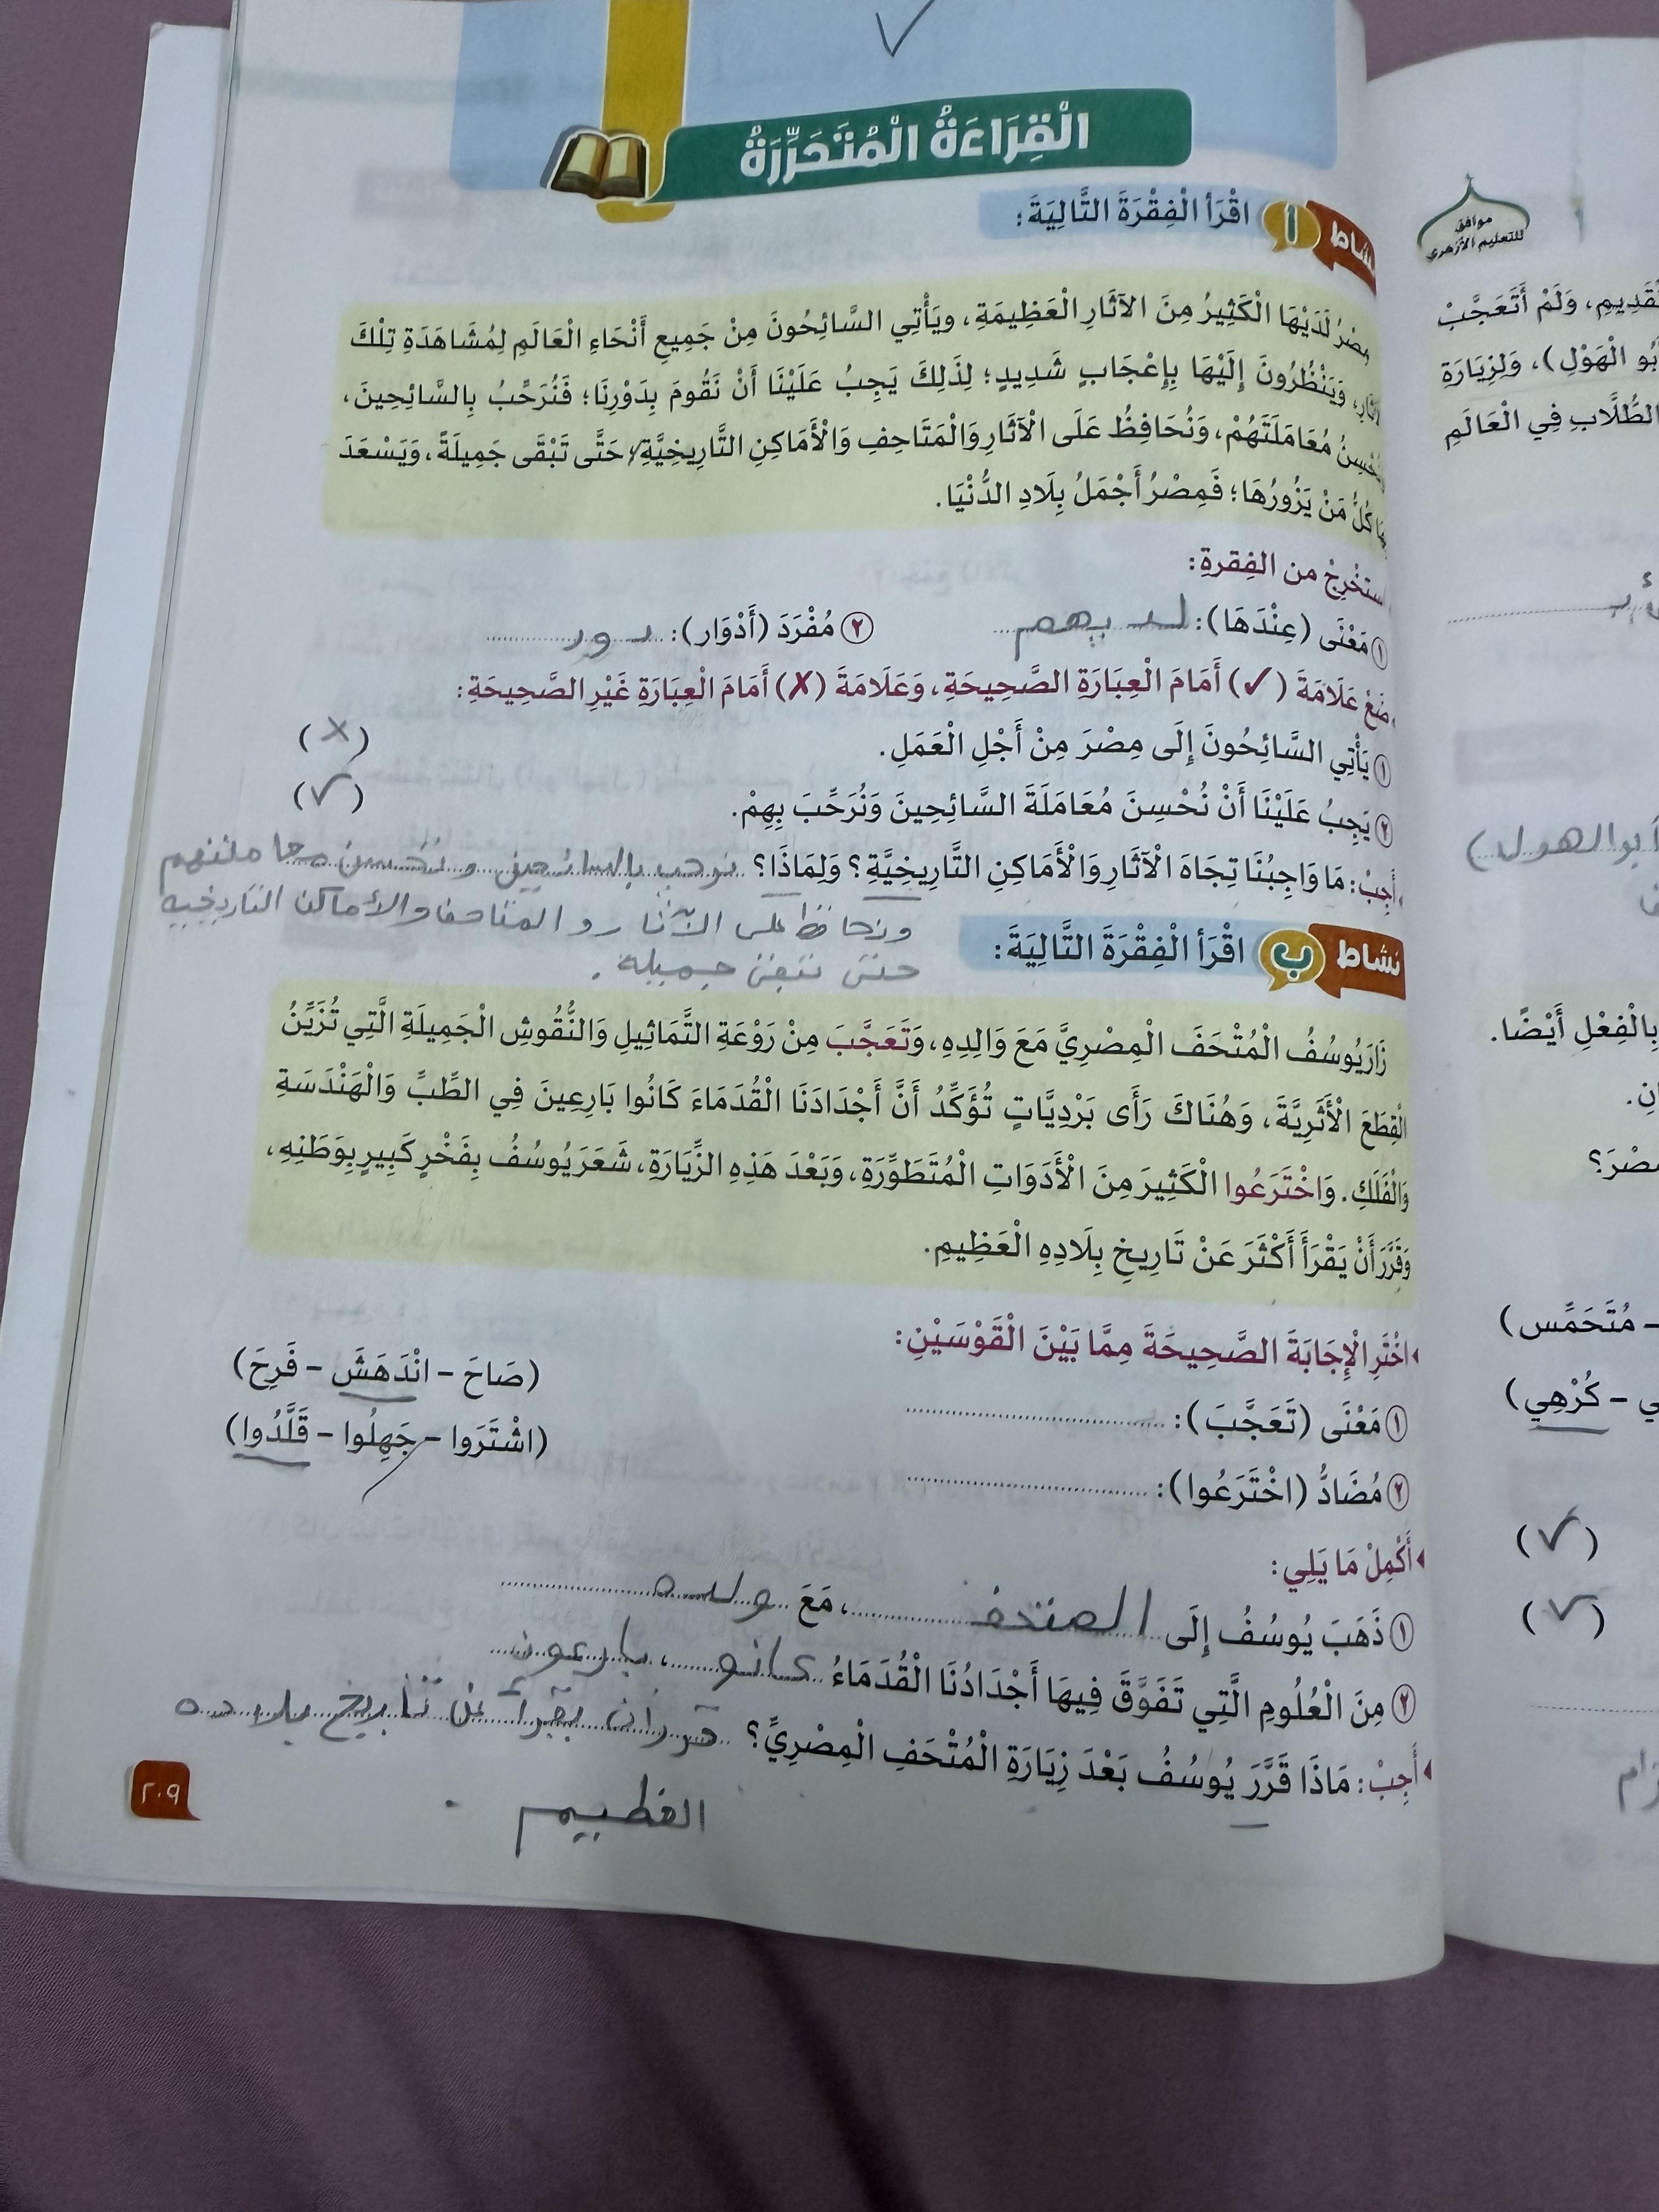 الْقِرَاءَةُ الْمُتَحَرِّرَةُ
نشاط أ اقْرَأ الْفِقْرَةَ التَّالِيَةَ:
مِصْرُ لَدَيْهَا الْكَثِيرُ مِنَ الآثَارِ الْعَظِيمَةِ، ويَأْتِي السَّائِحُونَ مِنْ جَمِيعِ أَنْحَاءِ الْعَالَمِ لِمُشَاهَدَةِ تِلْكَ
وَيَنْظُرُونَ إِلَيْهَا بِإِعْجَابٍ شَدِيدٍ؛ لِذَلِكَ يَجِبُ عَلَيْنَا أَنْ نَقُومَ بِدَوْرِنَا؛ فَنُرَحِّبُ بِالسَّائِحِينَ،
مُعَامَلَتَهُمْ، وَنُحَافِظُ عَلَى الْآثَارِ وَالْمَتَاحِفِ وَالْأَمَاكِنِ التَّارِيخِيَّةِ؛ حَتَّى تَبْقَى جَمِيلَةً، وَيَسْعَدَ
كُلُّ مَنْ يَزُورُهَا؛ فَمِصْرُ أَجْمَلُ بِلَادِ الدُّنْيَا.
استَخْرِجْ من الفِقرةِ:
١ مَعْنَى (عِنْدَهَا): لديهم ٢ مُفْرَدَ (أَدْوَار): دور
ضَعْ عَلَامَةَ (✓) أَمَامَ الْعِبَارَةِ الصَّحِيحَةِ، وَعَلَامَةَ (✗) أَمَامَ الْعِبَارَةِ غَيْرِ الصَّحِيحَةِ:
١ يَأْتِي السَّائِحُونَ إِلَى مِصْرَ مِنْ أَجْلِ الْعَمَلِ. (✗)
٢ يَجِبُ عَلَيْنَا أَنْ نُحْسِنَ مُعَامَلَةَ السَّائِحِينَ وَنُرَحِّبَ بِهِمْ. (✓)
أَجِبْ: مَا وَاجِبُنَا تِجَاهَ الْآثَارِ وَالْأَمَاكِنِ التَّارِيخِيَّةِ؟ وَلِمَاذَا؟ نرحب بالسائحين ونحسن معاملتهم
ونحافظ على الآثار والمتاحف والأماكن التاريخيه
حتى تبقى جميلة.
نشاط ب اقْرَأ الْفِقْرَةَ التَّالِيَةَ:
زَارَ يُوسُفُ الْمُتْحَفَ الْمِصْرِيَّ مَعَ وَالِدِهِ، وَتَعَجَّبَ مِنْ رَوْعَةِ التَّمَاثِيلِ وَالنُّقُوشِ الْجَمِيلَةِ الَّتِي تُزَيِّنُ
الْقِطَعَ الْأَثَرِيَّةَ، وَهُنَاكَ رَأَى بَرْدِيَّاتٍ تُؤَكِّدُ أَنَّ أَجْدَادَنَا الْقُدَمَاءَ كَانُوا بَارِعِينَ فِي الطِّبِّ وَالْهَنْدَسَةِ
وَالْفَلَكِ. وَاخْتَرَعُوا الْكَثِيرَ مِنَ الْأَدَوَاتِ الْمُتَطَوِّرَةِ، وَبَعْدَ هَذِهِ الزِّيَارَةِ، شَعَرَ يُوسُفُ بِفَخْرٍ كَبِيرٍ بِوَطَنِهِ،
وَقَرَّرَ أَنْ يَقْرَأَ أَكْثَرَ عَنْ تَارِيخِ بِلَادِهِ الْعَظِيمِ.
اخْتَرِ الْإِجَابَةَ الصَّحِيحَةَ مِمَّا بَيْنَ الْقَوْسَيْنِ:
١ مَعْنَى (تَعَجَّبَ): (صَاحَ - انْدَهَشَ - فَرِحَ)
٢ مُضَادُّ (اخْتَرَعُوا): (اشْتَرَوا - جَهِلُوا - قَلَّدُوا)
أَكْمِلْ مَا يَلِي:
١ ذَهَبَ يُوسُفُ إِلَى المتحف، مَعَ ولده
٢ مِنَ الْعُلُومِ الَّتِي تَفَوَّقَ فِيهَا أَجْدَادُنَا الْقُدَمَاءُ كانو، بارعون
أَجِبْ: مَاذَا قَرَّرَ يُوسُفُ بَعْدَ زِيَارَةِ الْمُتْحَفِ الْمِصْرِيِّ؟ قرر ان يقرأ عن تاريخ بلاده
العظيم
٢٠٩
موافق
للتعليم الأزهرى
وَلَمْ أَتَعَجَّبْ
الْهَوْلِ)، وَلِزِيَارَةِ
الطُّلَّابِ فِي الْعَالَمِ
أبو الهول)
بِالْفِعْلِ أَيْضًا.
مِصْرَ؟
- مُتَحَمِّس)
- كُرْهِي)
(✓)
(✓)